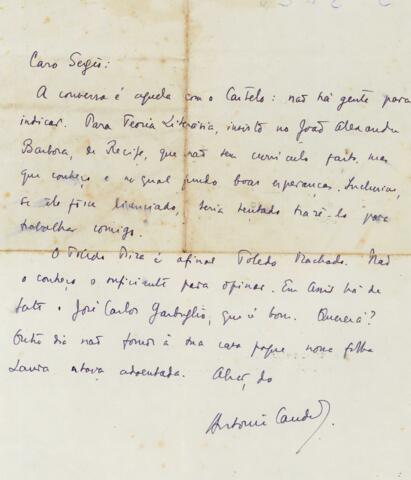 Caro Sergio:
A conversa é aquela com o Castelo: não há gente para
indicar. Para Teoria Literária, insisto no João Alexandre
Barbosa, de Recife, que não tem currículo farto, mas
que conheço e no qual ponho boas esperanças. Inclusive,
se ele fosse licenciado, seria tentado trazê-lo para
trabalhar comigo.
O Toledo é afinal Toledo Machado. Não
o conheço o suficiente para opinar. Em Assis há de
fato o José Carlos Garbuglio, que é bom. Quererá?
Outro dia não fomos à sua casa porque nossa filha
Laura estava adoentada. Abço do
Antonio Candido